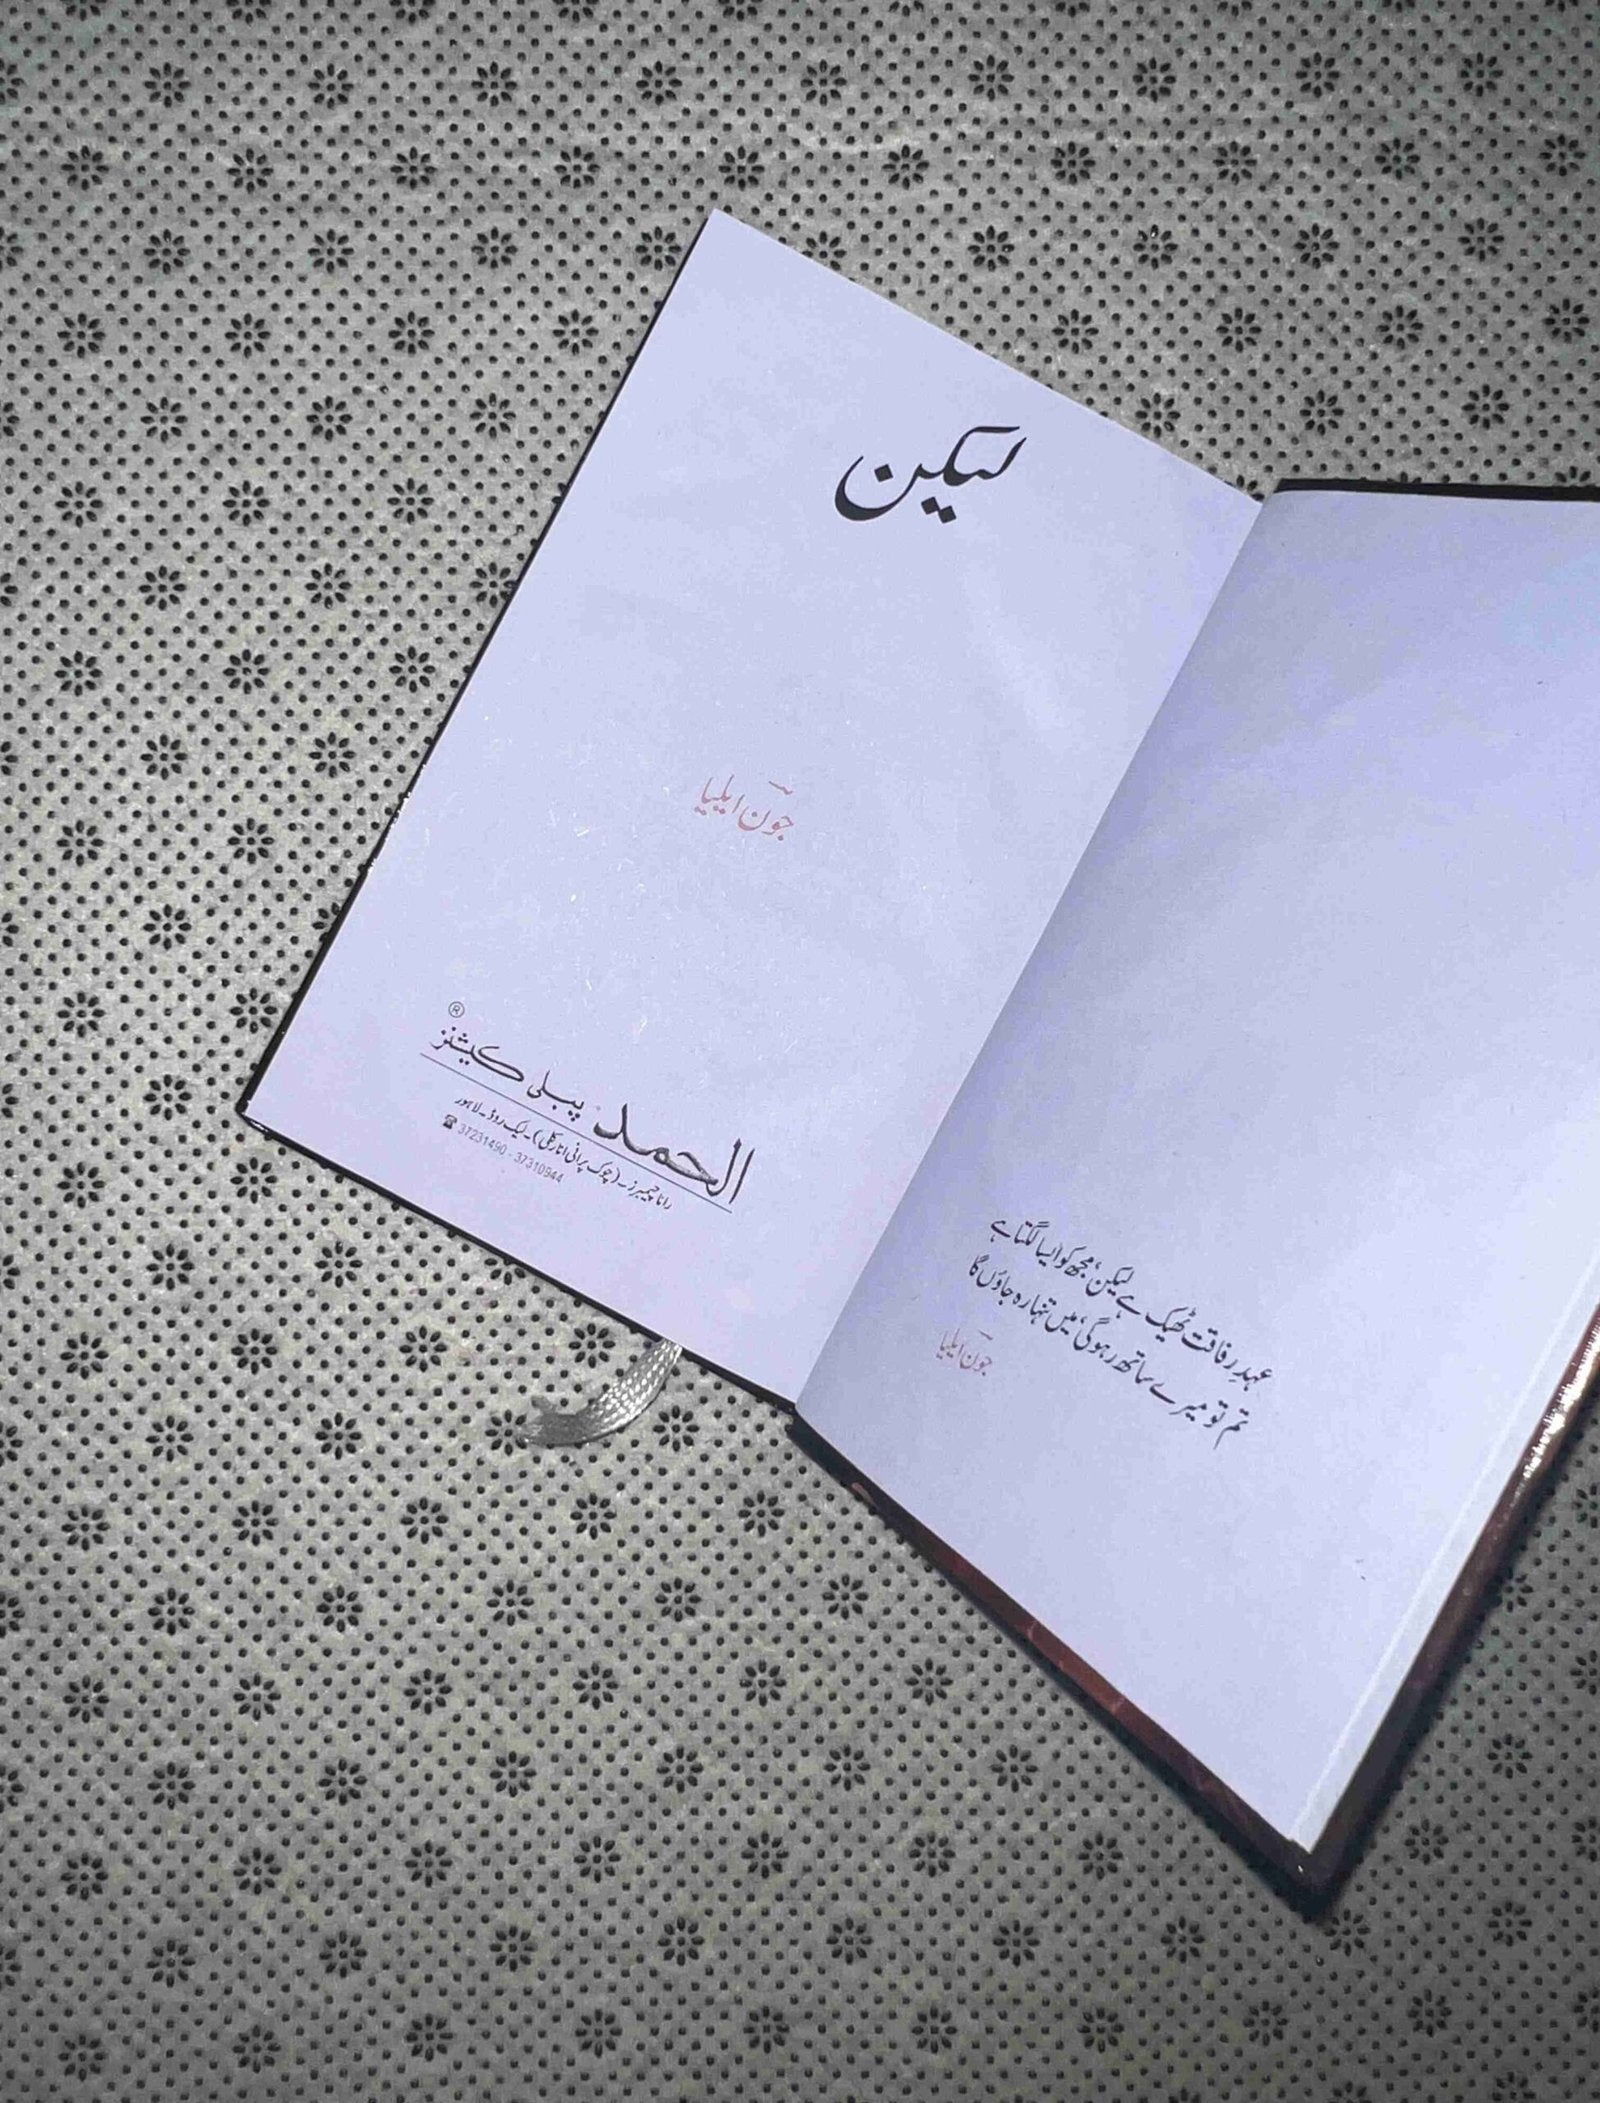 لیکن
جونؔ ایلیا
®
الحمد پبلی کیشنز
رانا چیمبرز۔ (چوک پرانی انارکلی)۔ لیک روڈ۔ لاہور
☎ 37231490 - 37310944
عہدِ رفاقت ٹھیک ہے لیکن، مجھ کو ایسا لگتا ہے
تم تو میرے ساتھ رہو گی، میں تنہا رہ جاؤں گا
جونؔ ایلیا